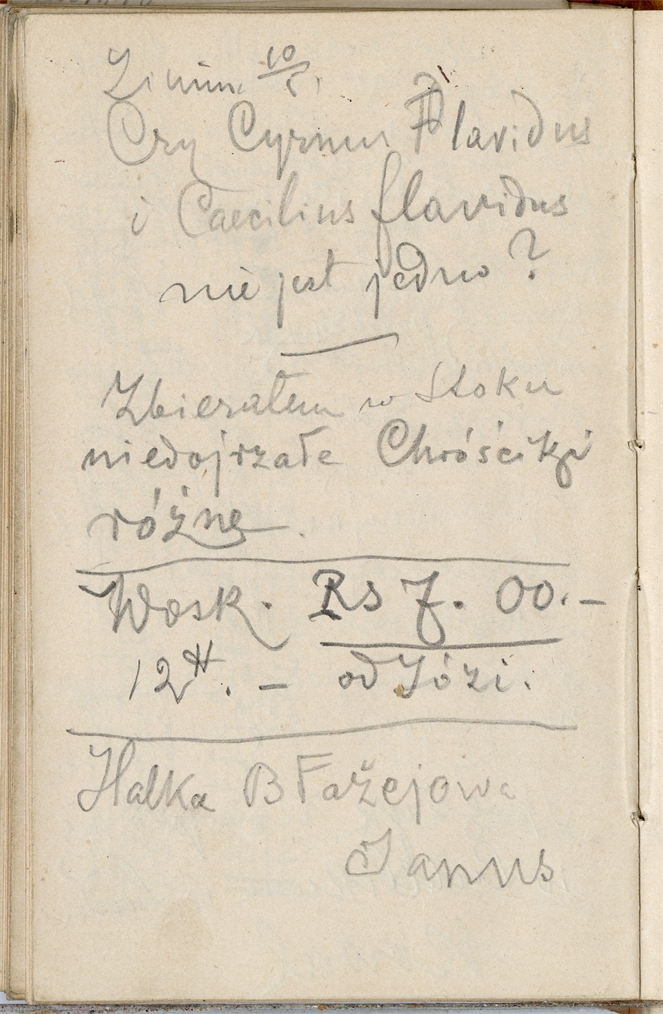 Zimin. 10/5.
Czy Cyrnus Flavidus
i Caecilius flavidus
nie jest jedno ?
Zbierałem w Stoku
niedojrzałe Chróściki
różne.
Wosk. Rs 7. 00.–
12 ℔. – od Józi.
Halka Błażejowa
Janus